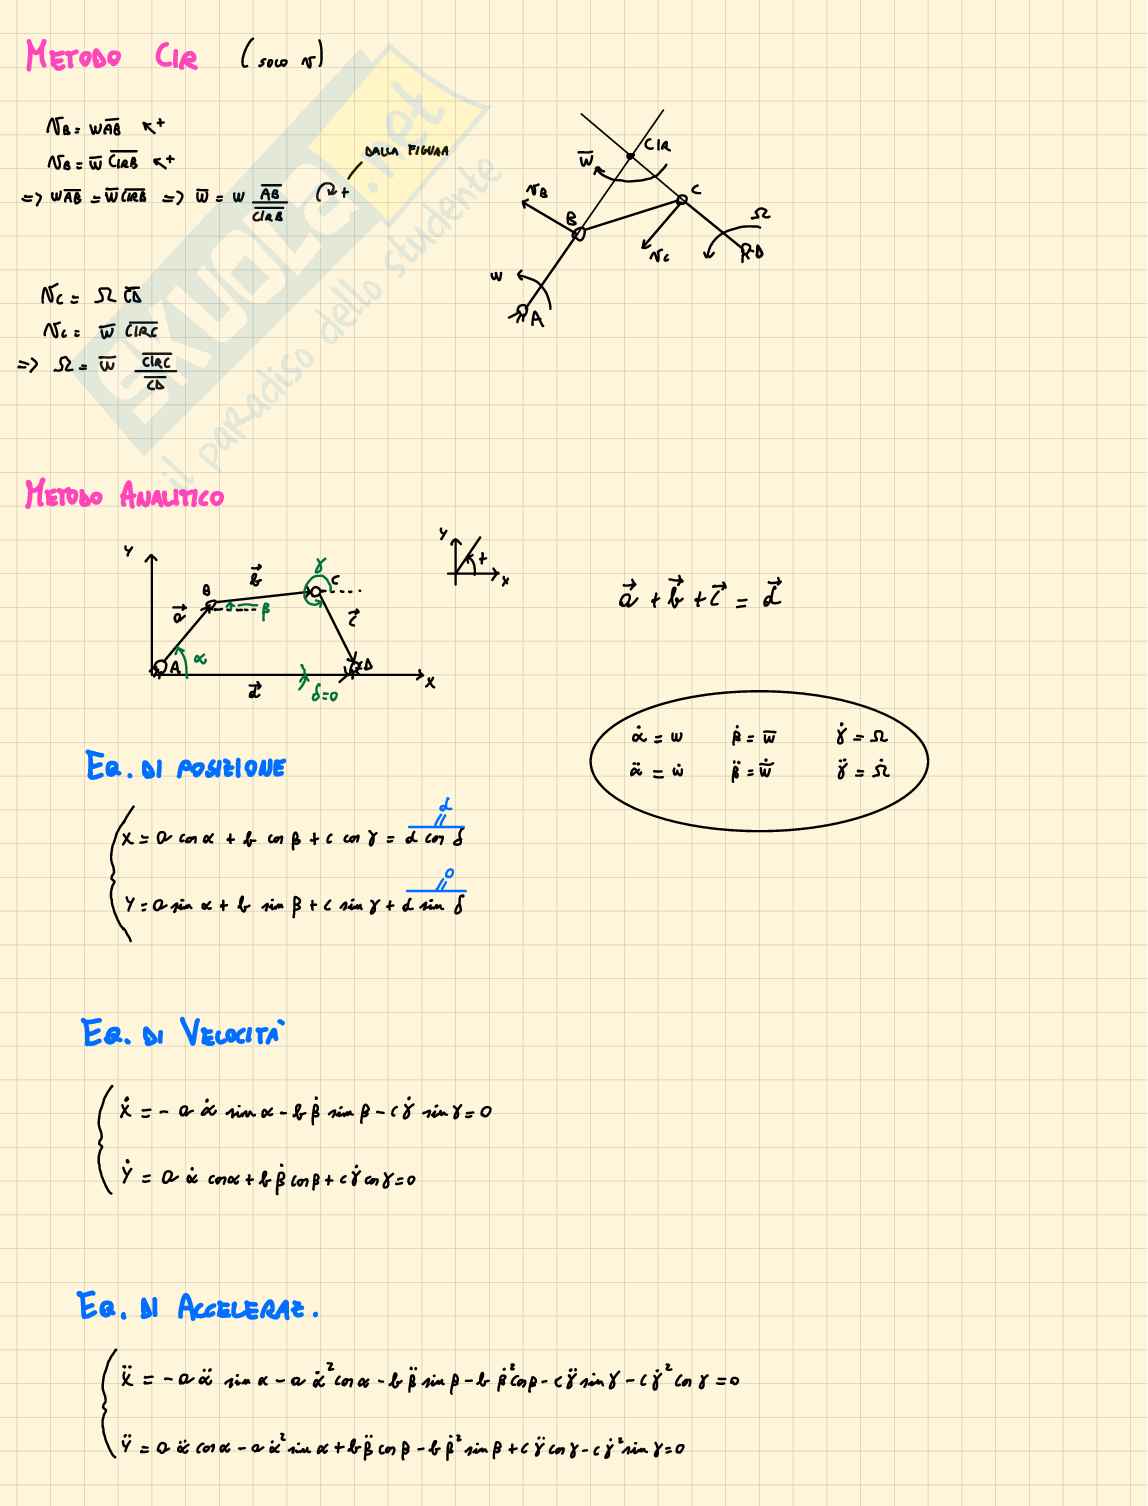 METODO CIR (SOLO v)
v_B = w \overline{AB} ↖+
v_B = \overline{w} \overline{CIRB} ↖+
DALLA FIGURA
=> w \overline{AB} = \overline{w} \overline{CIRB} => \overline{w} = w \frac{\overline{AB}}{\overline{CIRB}} ↷+
v_C = Ω \overline{CD}
v_C = \overline{w} \overline{CIRC}
=> Ω = \overline{w} \frac{\overline{CIRC}}{\overline{CD}}
CIR
\overline{w}
C
v_B
B
Ω
v_C
D
w
A
SKUOLA.net
il paradiso dello studente
METODO ANALITICO
Y
B
\vec{b}
γ
C
\vec{a}
β
\vec{c}
A
α
D
X
\vec{d}
δ=0
Y
+
X
\vec{a} + \vec{b} + \vec{c} = \vec{d}
\dot{α} = w \dot{β} = \overline{w} \dot{γ} = Ω
\ddot{α} = \dot{w} \ddot{β} = \dot{\overline{w}} \ddot{γ} = \dot{Ω}
EQ. DI POSIZIONE
d
X = a cos α + b cos β + c cos γ = d cos δ
0
Y = a sin α + b sin β + c sin γ + d sin δ
EQ. DI VELOCITÀ
\dot{X} = - a \dot{α} sin α - b \dot{β} sin β - c \dot{γ} sin γ = 0
\dot{Y} = a \dot{α} cos α + b \dot{β} cos β + c \dot{γ} cos γ = 0
EQ. DI ACCELERAZ.
\ddot{X} = - a \ddot{α} sin α - a \dot{α}² cos α - b \ddot{β} sin β - b \dot{β}² cos β - c \ddot{γ} sin γ - c \dot{γ}² cos γ = 0
\ddot{Y} = a \ddot{α} cos α - a \dot{α}² sin α + b \ddot{β} cos β - b \dot{β}² sin β + c \ddot{γ} cos γ - c \dot{γ}² sin γ = 0